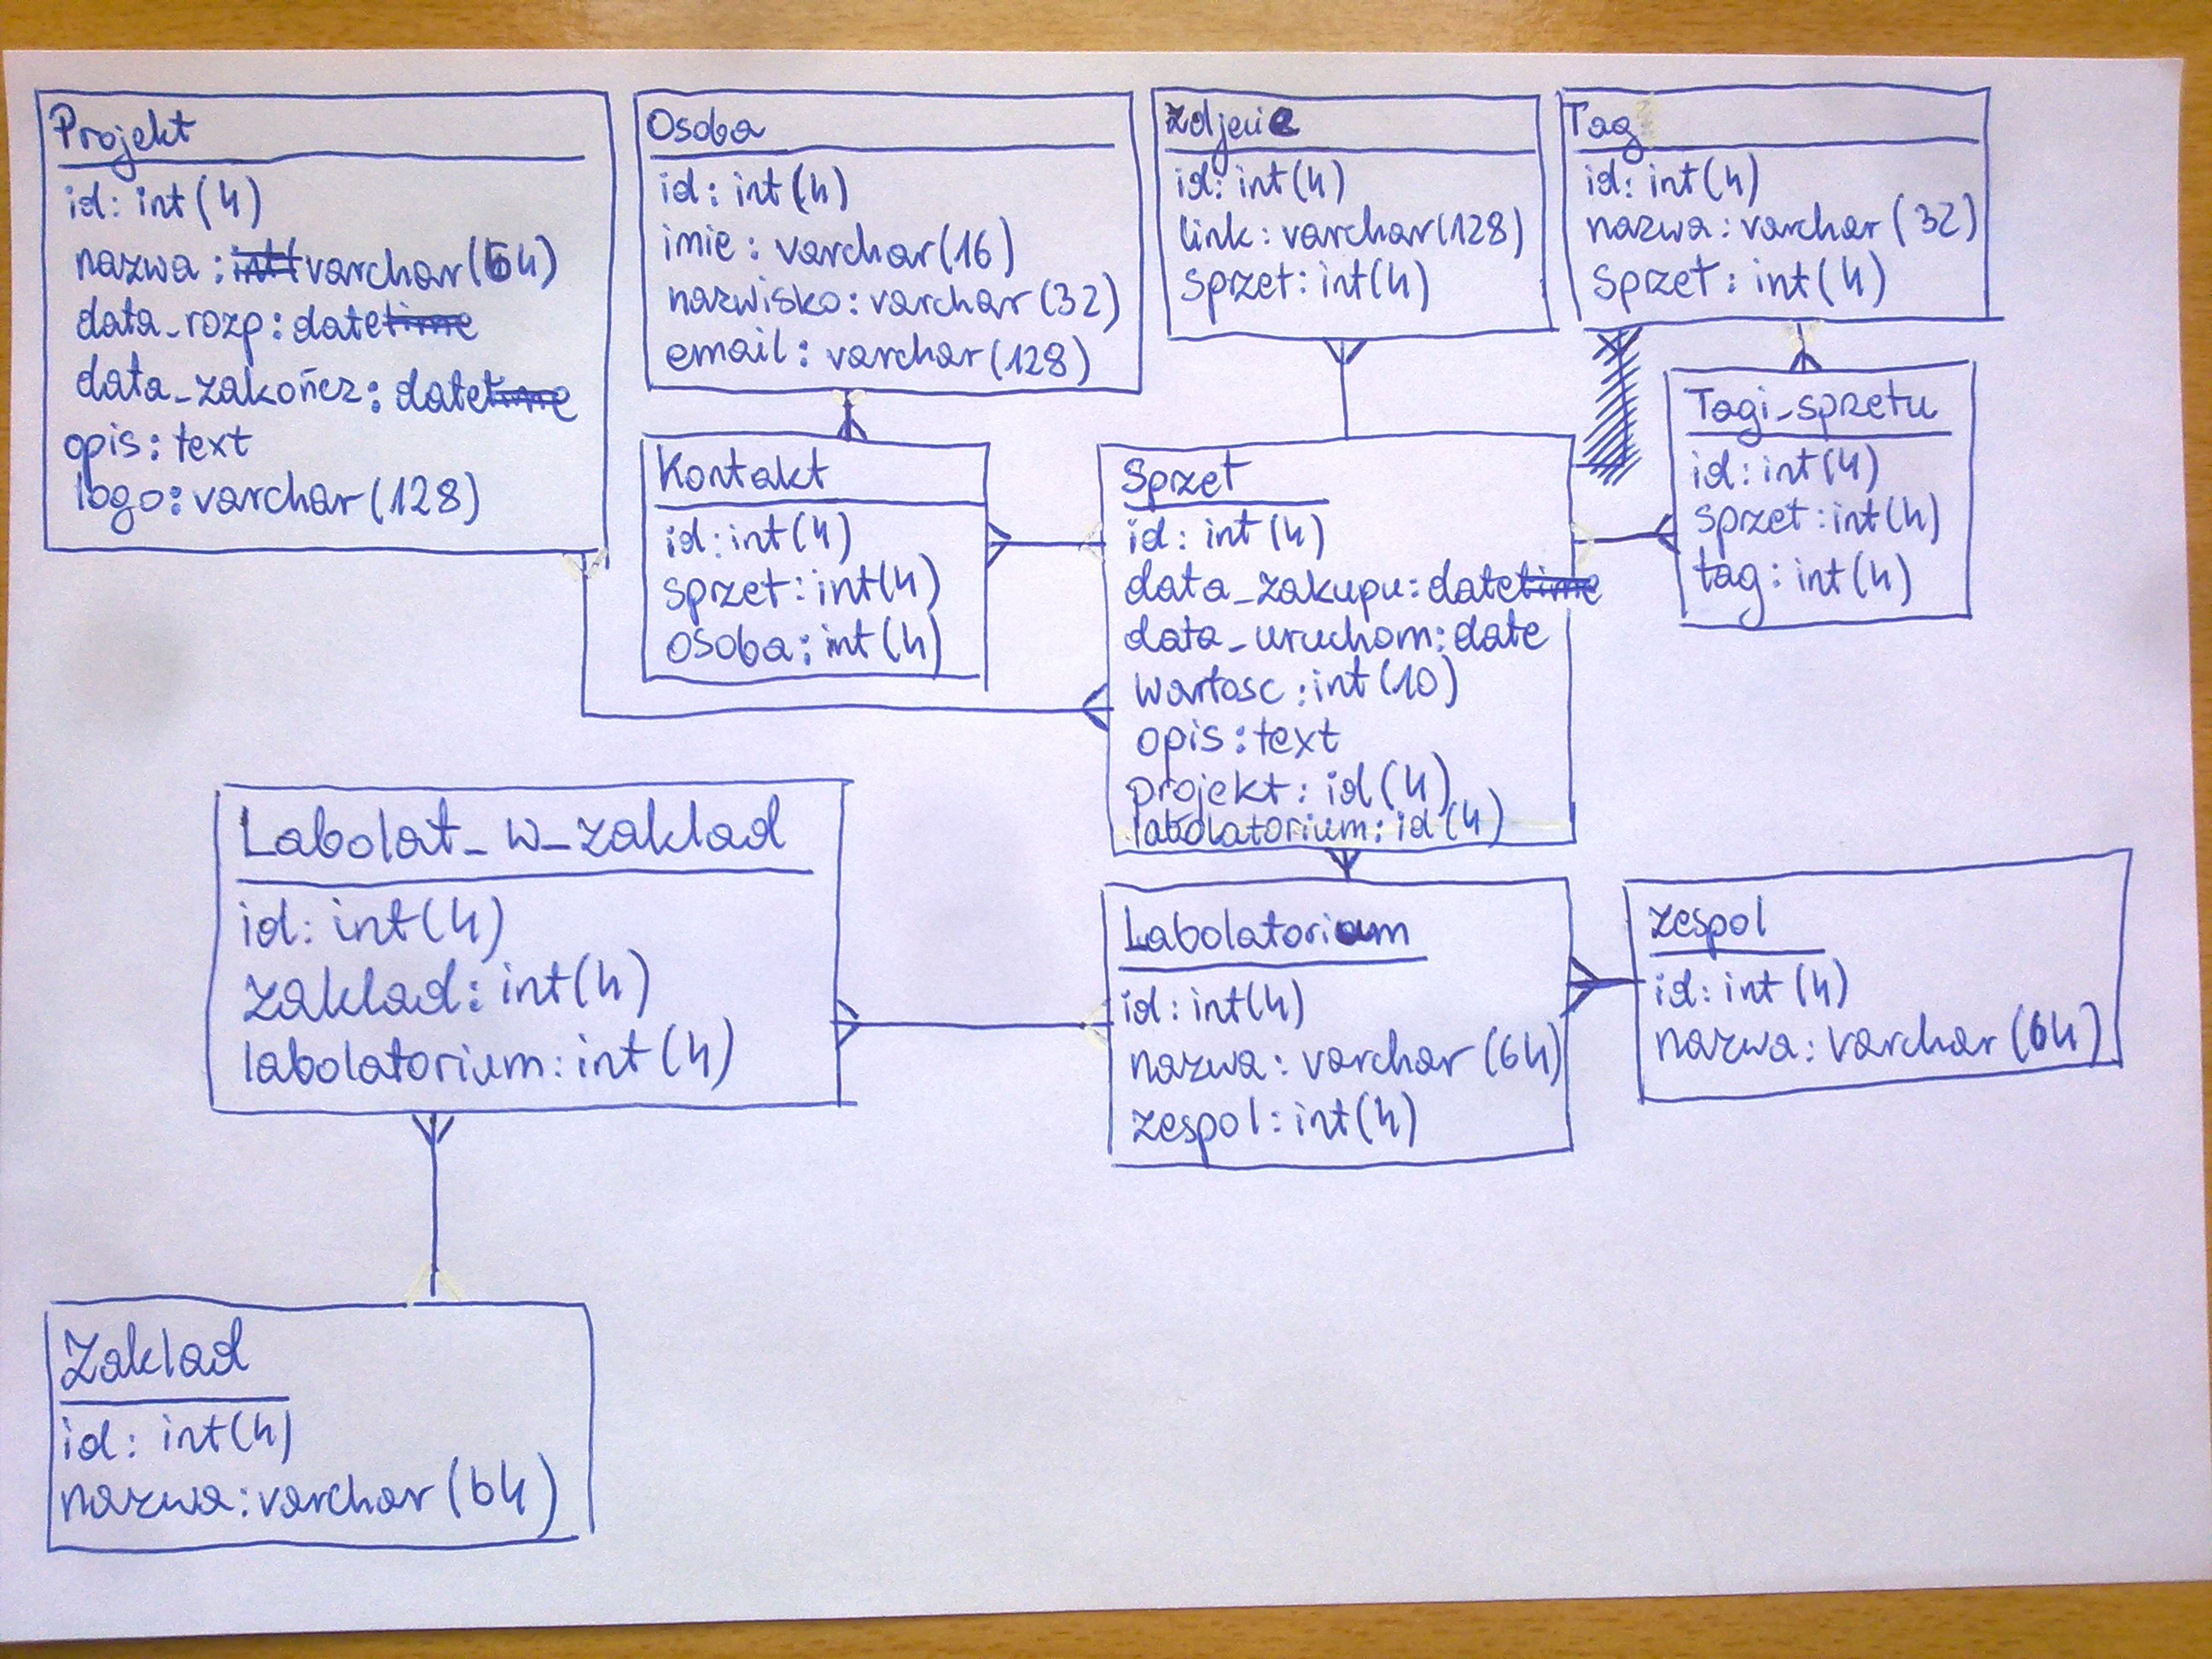 Projekt
id: int(4)
nazwa: varchar(64)
data_rozp: date
data_zakończ: date
opis: text
logo: varchar(128)
Osoba
id: int(4)
imie: varchar(16)
nazwisko: varchar(32)
email: varchar(128)
Zdjecie
id: int(4)
link: varchar(128)
sprzet: int(4)
Tag
id: int(4)
nazwa: varchar(32)
sprzet: int(4)
Kontakt
id: int(4)
sprzet: int(4)
osoba: int(4)
Sprzet
id: int(4)
data_zakupu: date
data_uruchom: date
wartosc: int(10)
opis: text
projekt: id(4)
labolatorium: id(4)
Tagi_sprzetu
id: int(4)
sprzet: int(4)
tag: int(4)
Labolat_w_zaklad
id: int(4)
zaklad: int(4)
labolatorium: int(4)
Labolatorium
id: int(4)
nazwa: varchar(64)
zespol: int(4)
zespol
id: int(4)
nazwa: varchar(64)
Zaklad
id: int(4)
nazwa: varchar(64)